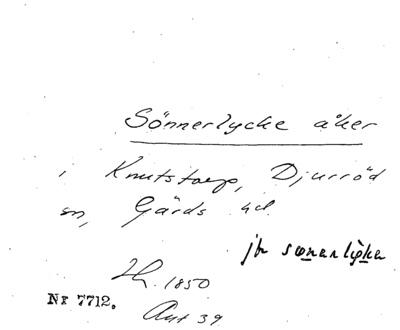 Sönnerlycke åker
i Knutstorp, Djurröd
sn, Gärds hd.
jfr sønerlyka
1850
Nr 7712.
Ant 39